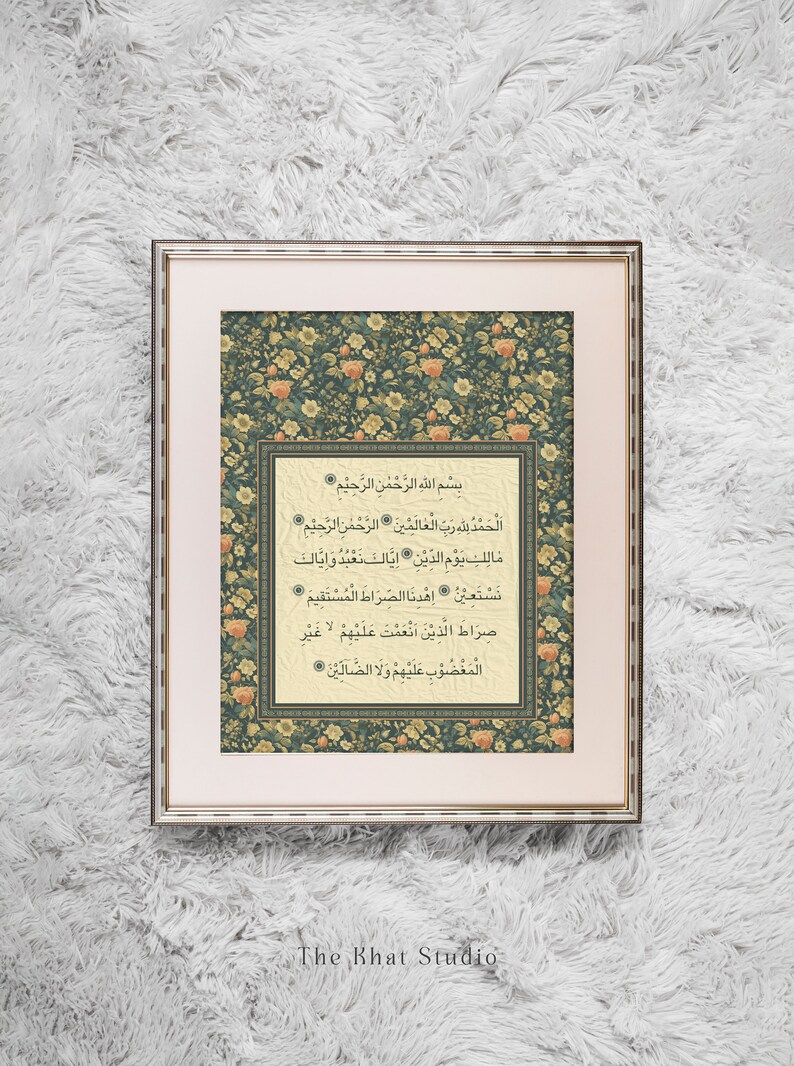 بِسْمِ اللهِ الرَّحْمٰنِ الرَّحِيْمِ
اَلْحَمْدُ لِلّٰهِ رَبِّ الْعَالَمِيْنَ الرَّحْمٰنِ الرَّحِيْمِ
مٰالِكِ يَوْمِ الدِّيْنِ اِيَّاكَ نَعْبُدُ وَاِيَّاكَ
نَسْتَعِيْنُ اِهْدِنَا الصِّرَاطَ الْمُسْتَقِيمَ
صِرَاطَ الَّذِيْنَ اَنْعَمْتَ عَلَيْهِمْ لا غَيْرِ
الْمَغْضُوْبِ عَلَيْهِمْ وَلَا الضَّالِّيْنَ
The Khat Studio